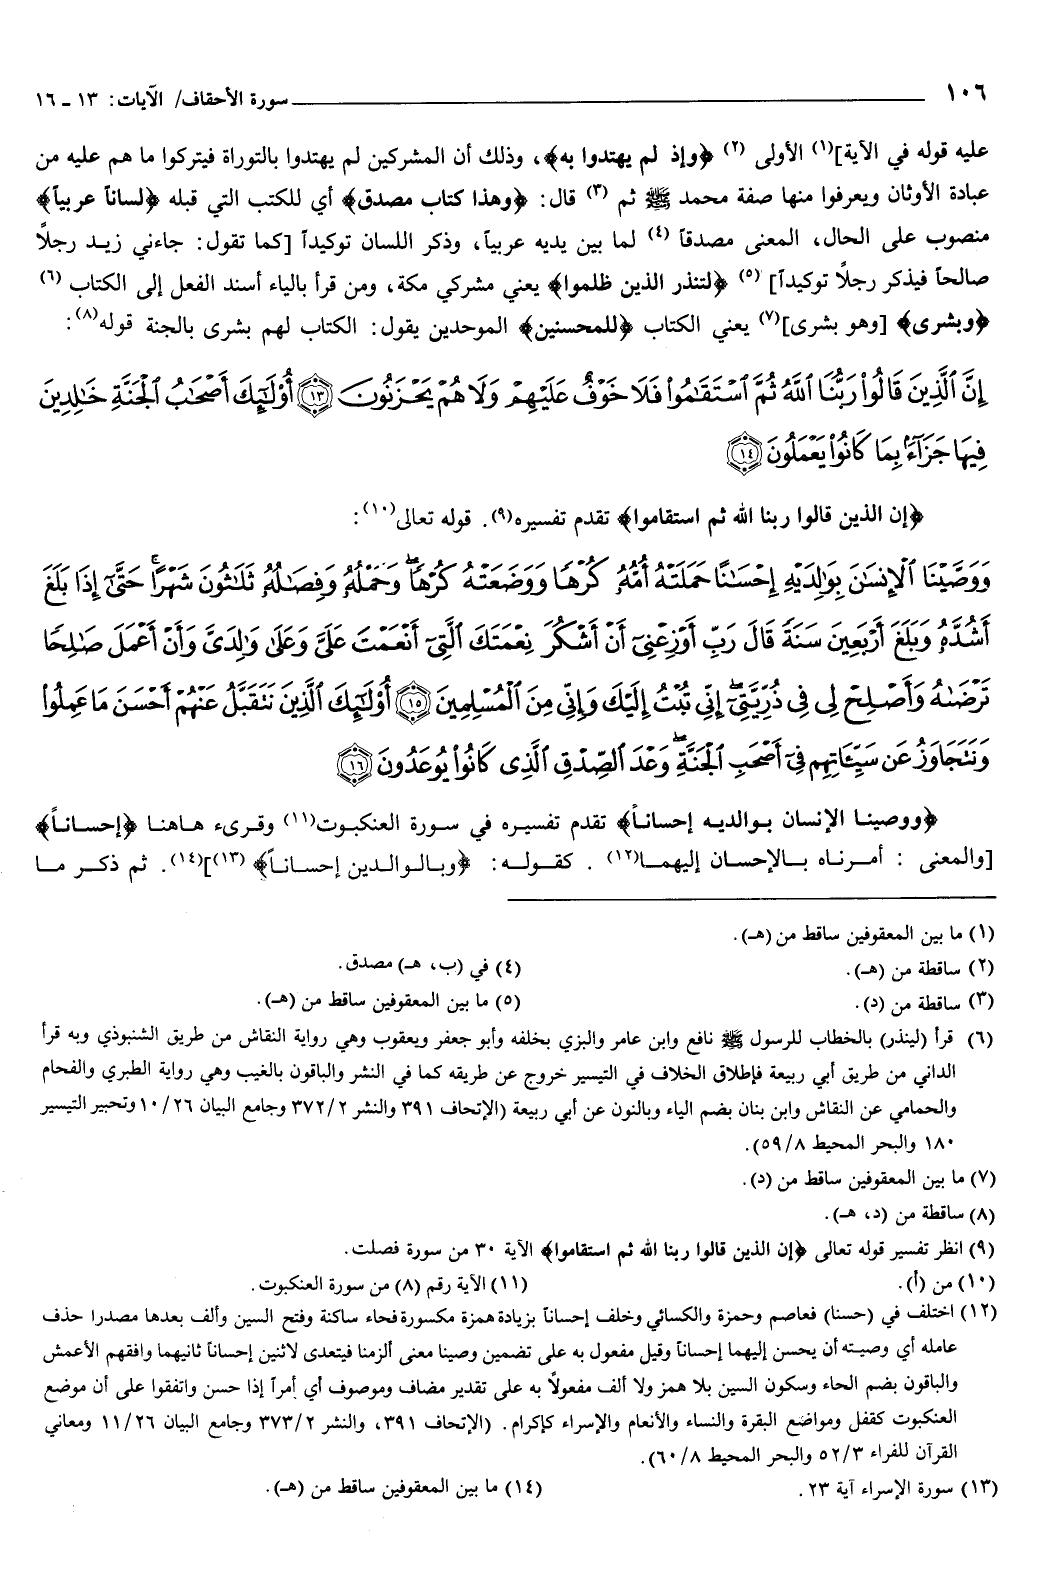 ١٠٦ سورة الأحقاف/ الآيات: ١٣ ـ ١٦
عليه قوله في الآية](١) الأولى (٢) ﴿وإذ لم يهتدوا به﴾، وذلك أن المشركين لم يهتدوا بالتوراة فيتركوا ما هم عليه من
عبادة الأوثان ويعرفوا منها صفة محمد ﷺ ثم (٣) قال: ﴿وهذا كتاب مصدق﴾ أي للكتب التي قبله ﴿لساناً عربياً﴾
منصوب على الحال، المعنى مصدقاً (٤) لما بين يديه عربياً، وذكر اللسان توكيداً [كما تقول: جاءني زيد رجلاً
صالحاً فيذكر رجلاً توكيداً] (٥) ﴿لتنذر الذين ظلموا﴾ يعني مشركي مكة، ومن قرأ بالياء أسند الفعل إلى الكتاب (٦)
﴿وبشرى﴾ [وهو بشرى](٧) يعني الكتاب ﴿للمحسنين﴾ الموحدين يقول: الكتاب لهم بشرى بالجنة قوله(٨):
إِنَّ ٱلَّذِينَ قَالُوا۟ رَبُّنَا ٱللَّهُ ثُمَّ ٱسْتَقَـٰمُوا۟ فَلَا خَوْفٌ عَلَيْهِمْ وَلَا هُمْ يَحْزَنُونَ ﴿١٣﴾ أُو۟لَـٰٓئِكَ أَصْحَـٰبُ ٱلْجَنَّةِ خَـٰلِدِينَ
فِيهَا جَزَآءًۢ بِمَا كَانُوا۟ يَعْمَلُونَ ﴿١٤﴾
﴿إن الذين قالوا ربنا الله ثم استقاموا﴾ تقدم تفسيره(٩). قوله تعالى(١٠):
وَوَصَّيْنَا ٱلْإِنسَـٰنَ بِوَٰلِدَيْهِ إِحْسَـٰنًا حَمَلَتْهُ أُمُّهُۥ كُرْهًا وَوَضَعَتْهُ كُرْهًا ۖ وَحَمْلُهُۥ وَفِصَـٰلُهُۥ ثَلَـٰثُونَ شَهْرًا ۚ حَتَّىٰٓ إِذَا بَلَغَ
أَشُدَّهُۥ وَبَلَغَ أَرْبَعِينَ سَنَةً قَالَ رَبِّ أَوْزِعْنِىٓ أَنْ أَشْكُرَ نِعْمَتَكَ ٱلَّتِىٓ أَنْعَمْتَ عَلَىَّ وَعَلَىٰ وَٰلِدَىَّ وَأَنْ أَعْمَلَ صَـٰلِحًا
تَرْضَىٰهُ وَأَصْلِحْ لِى فِى ذُرِّيَّتِىٓ ۖ إِنِّى تُبْتُ إِلَيْكَ وَإِنِّى مِنَ ٱلْمُسْلِمِينَ ﴿١٥﴾ أُو۟لَـٰٓئِكَ ٱلَّذِينَ نَتَقَبَّلُ عَنْهُمْ أَحْسَنَ مَا عَمِلُوا۟
وَنَتَجَاوَزُ عَن سَيِّـَٔاتِهِمْ فِىٓ أَصْحَـٰبِ ٱلْجَنَّةِ ۖ وَعْدَ ٱلصِّدْقِ ٱلَّذِى كَانُوا۟ يُوعَدُونَ ﴿١٦﴾
﴿ووصينا الإنسان بوالديه إحساناً﴾ تقدم تفسيره في سورة العنكبوت(١١) وقرىء هاهنا ﴿إحساناً﴾
[والمعنى : أمرناه بالإحسان إليهما(١٢) . كقوله: ﴿وبالوالدين إحساناً﴾ (١٣)](١٤). ثم ذكر ما
(١) ما بين المعقوفين ساقط من (هـ).
(٢) ساقطة من (هـ). (٤) في (ب، هـ) مصدق.
(٣) ساقطة من (د). (٥) ما بين المعقوفين ساقط من (هـ).
(٦) قرأ (لينذر) بالخطاب للرسول ﷺ نافع وابن عامر والبزي بخلفه وأبو جعفر ويعقوب وهي رواية النقاش من طريق الشنبوذي وبه قرأ
الداني من طريق أبي ربيعة فإطلاق الخلاف في التيسير خروج عن طريقه كما في النشر والباقون بالغيب وهي رواية الطبري والفحام
والحمامي عن النقاش وابن بنان بضم الياء وبالنون عن أبي ربيعة (الإتحاف ٣٩١ والنشر ٣٧٢/٢ وجامع البيان ١٠/٢٦ وتحبير التيسير
١٨٠ والبحر المحيط ٥٩/٨).
(٧) ما بين المعقوفين ساقط من (د).
(٨) ساقطة من (د، هـ).
(٩) انظر تفسير قوله تعالى ﴿إن الذين قالوا ربنا الله ثم استقاموا﴾ الآية ٣٠ من سورة فصلت.
(١٠) من (أ). (١١) الآية رقم (٨) من سورة العنكبوت.
(١٢) اختلف في (حسنا) فعاصم وحمزة والكسائي وخلف إحساناً بزيادة همزة مكسورة فحاء ساكنة وفتح السين وألف بعدها مصدرا حذف
عامله أي وصيته أن يحسن إليهما إحساناً وقيل مفعول به على تضمين وصينا معنى ألزمنا فيتعدى لاثنين إحساناً ثانيهما وافقهم الأعمش
والباقون بضم الحاء وسكون السين بلا همز ولا ألف مفعولاً به على تقدير مضاف وموصوف أي أمراً إذا حسن واتفقوا على أن موضع
العنكبوت كقفل ومواضع البقرة والنساء والأنعام والإسراء كإكرام. (الإتحاف ٣٩١، والنشر ٣٧٣/٢ وجامع البيان ١١/٢٦ ومعاني
القرآن للفراء ٥٢/٣ والبحر المحيط ٦٠/٨).
(١٣) سورة الإسراء آية ٢٣. (١٤) ما بين المعقوفين ساقط من (هـ).